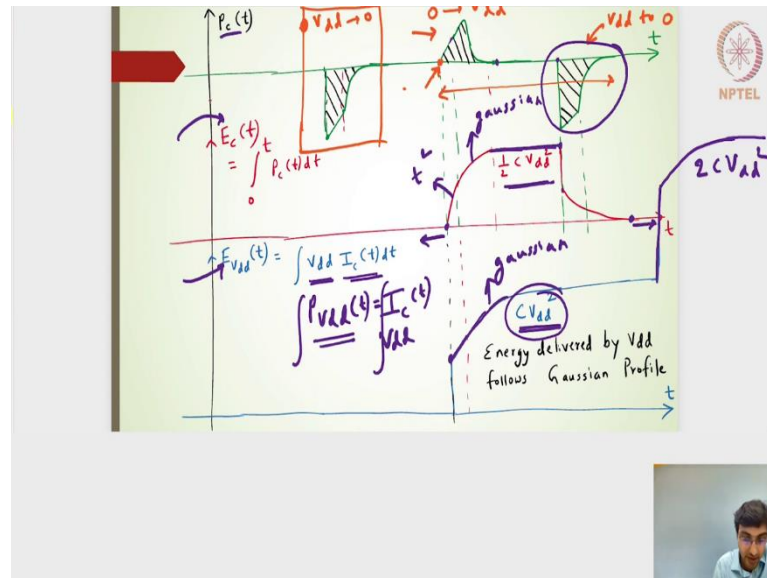 Pc(t)
Vdd → 0
0 → Vdd
Vdd to 0
t
NPTEL
Ec(t)
= ∫₀ᵗ Pc(t)dt
gaussian
t²
½ C Vdd²
2 C Vdd²
t
EVdd(t) = ∫ Vdd Ic(t) dt
∫ PVdd(t) = ∫ Ic(t) Vdd
gaussian
C Vdd²
Energy delivered by Vdd
follows Gaussian Profile
t